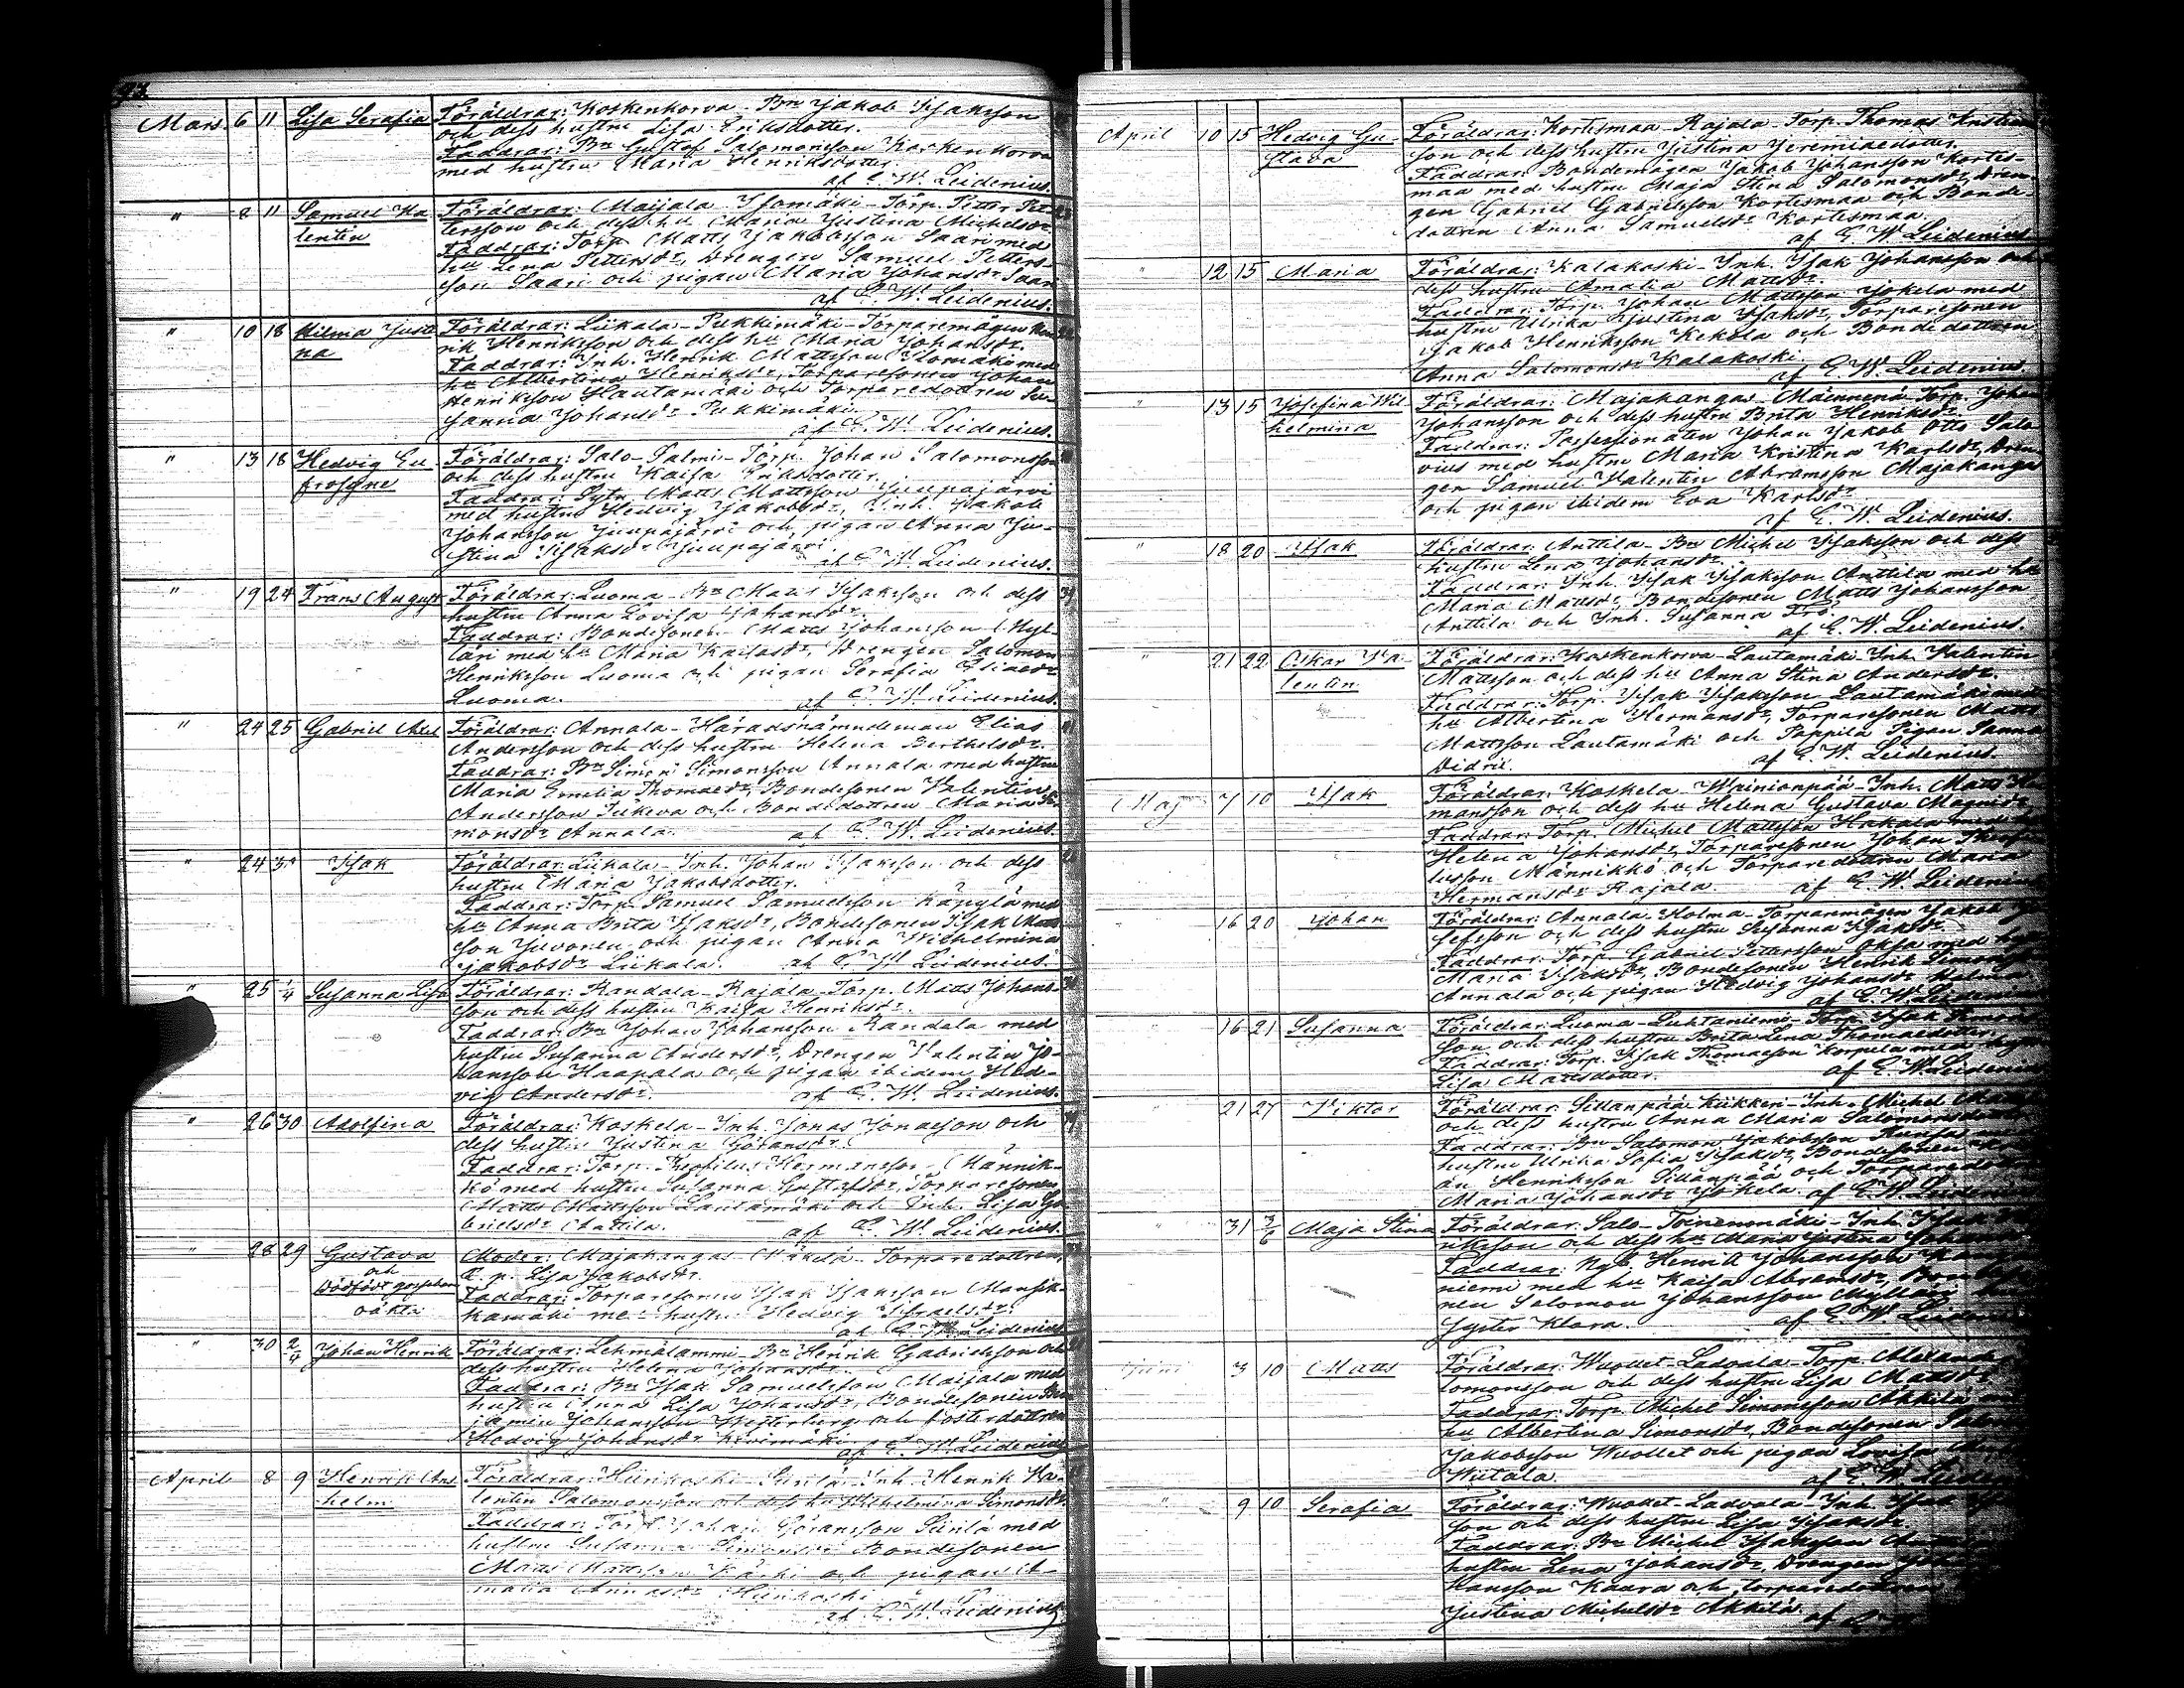 Mars. 6 11 Lisa Serafia Föräldrar: Koskenkorva - Bn Jakob Isaksson
och dess hustru Lisa Eriksdotter.
Faddrar: Bn Gustaf Salomonsson Koskenkorva
med hustru Maria Henriksdotter.
af E. W. Leidenius.
" 8 11 Samuel Va- Föräldrar: Maijala - Torp. Petter Pet-
lentin tersson och dess hu Maria Justina Michelsdr
Faddrar: Torp. Matts Jakobsson Saari med
hu Lena Pettersdr, Drengen Samuel Petters-
son Saari och pigan Maria Johansdr Saari
af E. W. Leidenius.
" 10 18 Hilma Justi- Föräldrar: Liikala - Pukkimäki - Torparemågen Hen-
na rik Henriksson och dess hu Maria Johansdr.
Faddrar: Inh. Henrik Mattsson med
hu Albertina Henriksdr, Torparesonen Johan
Henriksson Hautamäki och Torparedottren Su-
sanna Johansdr Pukkimäki.
af E. W. Leidenius.
" 13 18 Hedvig Eu- Föräldrar: Salo - Palmi - Torp. Johan Salomonsson
frosyne och dess hustru Kaisa Eriksdotter.
Faddrar: Sytn. Matts Mattsson Juupajärvi
med hustru Hedvig Jakobsdr, Inh. Jakob
Johansson Juupajärvi och pigan Anna Ju-
stina Isaksdr Juupajärvi.
af E. W. Leidenius.
" 19 24 Frans August Föräldrar: Luoma - Bn Matts Isaksson och dess
hustru Anna Lovisa Johansdr.
Faddrar: Bondesonen Matts Johansson Myl-
läri med hu Maria Kaisasdr, Drengen Salomon
Henriksson Luoma och pigan Serafia Eliaedr
Luoma. af E. W. Leidenius.
" 24 25 Gabriel Axel Föräldrar: Annala - Häradsnämndeman Elias
Andersson och dess hustru Helena Bertholsdr.
Faddrar: Bn Simon Simonsson Annala med hustru
Maria Emelia Thomaedr, Bondesonen Valentin
Andersson och Bondedottren Maria Si-
monsdr Annala. af E. W. Leidenius.
" 24 30 Isak Föräldrar: Liikala - Inh. Johan Isaksson och dess
hustru Maria Jakobsdotter.
Faddrar: Torp. Samuel Samuelsson Käpylä med
hu Anna Brita Isaksdr, Bondesonen Isak Matts-
son Juvonen och pigan Anna Wilhelmina
Jakobsdr Liikala. af E. W. Leidenius.
" 25 1/4 Susanna Lisa Föräldrar: Randala - Rajala - Torp. Matts Johans-
son och dess hustru Kaisa Henriksdr.
Faddrar: Bn Johan Johansson Randala med
hustru Susanna Andersdr, Drengen Valentin Jo-
hansson Haapala och pigan ibidem Hed-
vig Andersdr. af E. W. Leidenius.
" 26 30 Adolfina Föräldrar: Koskela - Inh. Jonas Jonasson och
dess hustru Justina Göransdr.
Faddrar: Torp. Teofilus Hermansson Männik-
kö med hustru Susanna Gustafsdr, Torparesonen
Matts Mattsson Lautamäki och Inh. Lisa Ga-
brielsdr Mattila. af E. W. Leidenius.
" 28 29 Gustava Moder: Majakangas - Mäkelä - Torparedottren
och
Dödfödt gossebarn Q. p. Lisa Jakobsdr.
oäkta Faddrar: Torparesonen Isak Isaksson Mansik-
kamäki med hustru Hedvig Israelsdr.
af E. W. Leidenius
" 30 2/4 Johan Henrik Föräldrar: Lehmälammi - Bn Henrik Gabrielsson och
dess hustru Helena Johansdr.
Faddrar: Bn Isak Samuelsson Maijala med
hustru Anna Lisa Johansdr, Bondesonen Ben-
jamin Johansson Westerburg och Fosterdottren
Hedvig Johansdr Kivimäki.
af E. W. Leidenius
April 8 9 Henrik An- Föräldrar: Hiirikoski - Sirilä - Inh. Henrik Va-
shelm. lentin Salomonsson och dess hu Wilhelmina Simonsdr.
Faddrar: Torp. Johan Göransson Sirilä med
hustru Susanna Simonsdr Bondesonen
Matts Mattsson och pigan A-
malia Annasdr Hiirikoski
af E. W. Leidenius
April 10 15 Hedvig Gu- Föräldrar: Kortesmaa - Rajala - Torp. Thomas
stava son och dess hustru Justina Jeremiaedotter.
Faddrar: Bondemågen Jakob Johansson Kortes-
maa med hustru Maja Stina Salomonsdr, Dren-
gen Gabriel Gabrielsson Kortesmaa och Bonde-
dottren Anna Samuelsdr Kortesmaa.
af E. W. Leidenius.
" 12 15 Maria Föräldrar: Kalakoski - Inh. Isak Johansson och
dess hustru Amalia Mattsdr.
Faddrar: Torp. Johan Mattsson Jokela med
hustru Ulrika Justina Isaksdr, Torparesonen
Jakob Henriksson Kekola och Bondedottren
Anna Salomonsdr Kalakoski.
af E. W. Leidenius
" 13 15 Josefina Wil- Föräldrar: Majakangas - Torp. Johan
helmina Johansson och dess hustru Brita Henriksdr.
Faddrar: Possessionaten Johan Jakob Otto Salo-
vius med hustru Maria Kristina Karlsdr, Dren-
gen Samuel Valentin Abramsson Majakangas
och pigan ibidem Eva Karlsdr.
af E. W. Leidenius.
" 18 20 Isak Föräldrar: Anttila - Bn Michel Isaksson och dess
hustru Lena Johansdr.
Faddrar: Inh. Isak Isaksson Anttila med hu
Maria Mattsdr, Bondesonen Matts Johansson
Anttila och Inh. Susanna
af E. W. Leidenius.
" 21 22 Oskar Va- Föräldrar: Koskenkorva - Lautamäki - Inh. Valentin
lentin Mattsson och dess hu Anna Stina Andersdr.
Faddrar: Torp. Isak Isaksson Lautamäki med
hu Albertina Hermansdr, Torparesonen Matts
Mattsson Lautamäki och Pappila Pigan Sanna
Didrik. af E. W. Leidenius.
Maj 7 10 Isak Föräldrar: Koskela - Wainionpää - Inh. Matts
mansson och dess hu Helena Gustava Magnidr.
Faddrar: Torp. Michel Mattsson med
Helena Johansdr, Torparesonen Johan
lusson Männikkö och Torparedottren Maria
Hermansdr Rajala af E. W. Leidenius
" 16 20 Johan Föräldrar: Annala - Holma - Torparemågen Jakob
sefsson och dess hustru Susanna Isaksdr.
Faddrar: Torp. Gabriel Petersson Oksa med
Maria Isaksdr, Bondesonen Henrik Simonsson
Annala och pigan Hedvig Johansdr
af E. W. Leidenius
" 16 21 Susanna Föräldrar: Luoma - Luhtaniemi - Torp. Isak
son och dess hustru Brita Lena Thomaedotter.
Faddrar: Torp. Isak Thomasson Korpela med
Lisa Mattsdotter. af E. W. Leidenius
" 21 27 Viktor Föräldrar: Sillanpää Kükkeri - Inh. Michel
och dess hustru Anna Maria Salomonsdotter
Faddrar: Bn Salomon Jakobsson
hustru Ulrika Sofia Isaksdr, Bondesonen
an Henriksson Sillanpää och Torparedottren
Maria Johansdr Jokela. af E. W. Leidenius
" 31 3/6 Maja Stina Föräldrar: Salo - Toinenmäki - Inh. Isak
riksson och dess hu Maria Justina Johansdr
Faddrar: Henrik Johansson
niemi med hu Kaisa Abramsdr, Bondeso-
nen Salomon Johansson Mylläri
syster Klara. af E. W. Leidenius
Juni 3 10 Matts Föräldrar: Wuollet - Ladvala - Torp.
lomonsson och dess hustru Lisa Mattsdr
Faddrar: Torp. Michel Simonsson Akkila
hu Albertina Simonsdr, Bondesonen
Jakobsson Wuollet och pigan Lovisa
Wiitala. af E. W. Leidenius
" 9 10 Serafia Föräldrar: Wuollet - Ladvala - Inh. Isak
son och dess hustru Lisa Isaksdr
Faddrar: Bn Michel Isaksson
hustru Lena Johansdr, Drengen
hansson Kaara och torparedottren
Justina Michelsdr Akkila